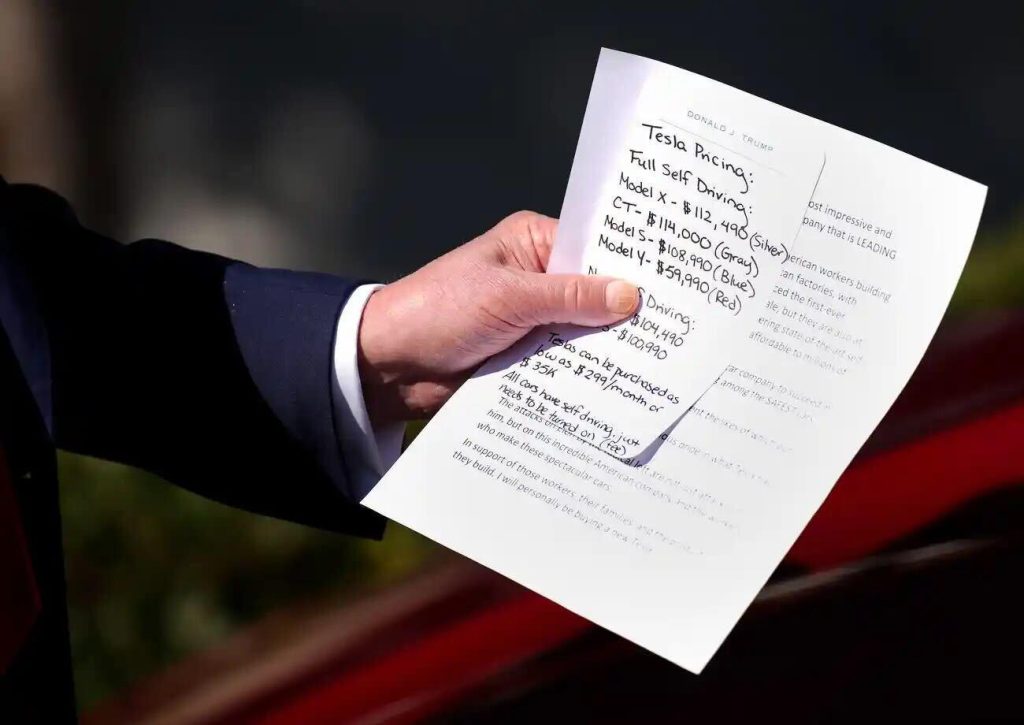 DONALD J. TRUMP
Tesla Pricing:
Full Self Driving:
Model X - $112,490 (Silver)
CT - $114,000 (Gray)
Model S - $108,990 (Blue)
Model Y - $59,990 (Red)
Driving:
$104,490
- $100,990
Teslas can be purchased as
low as $299/month or
$35K
All cars have self driving, just
needs to be turned on (fee)
ost impressive and
pany that is LEADING
erican workers building
an factories, with
ced the first-ever
ale, but they are also at
ering state-of-the-art
affordable to millions of
car company to succeed in
among the SAFEST
The attacks on
him, but on this incredible American company, and the
who make these spectacular cars.
In support of those workers, their families, and the
they build, I will personally be buying a new